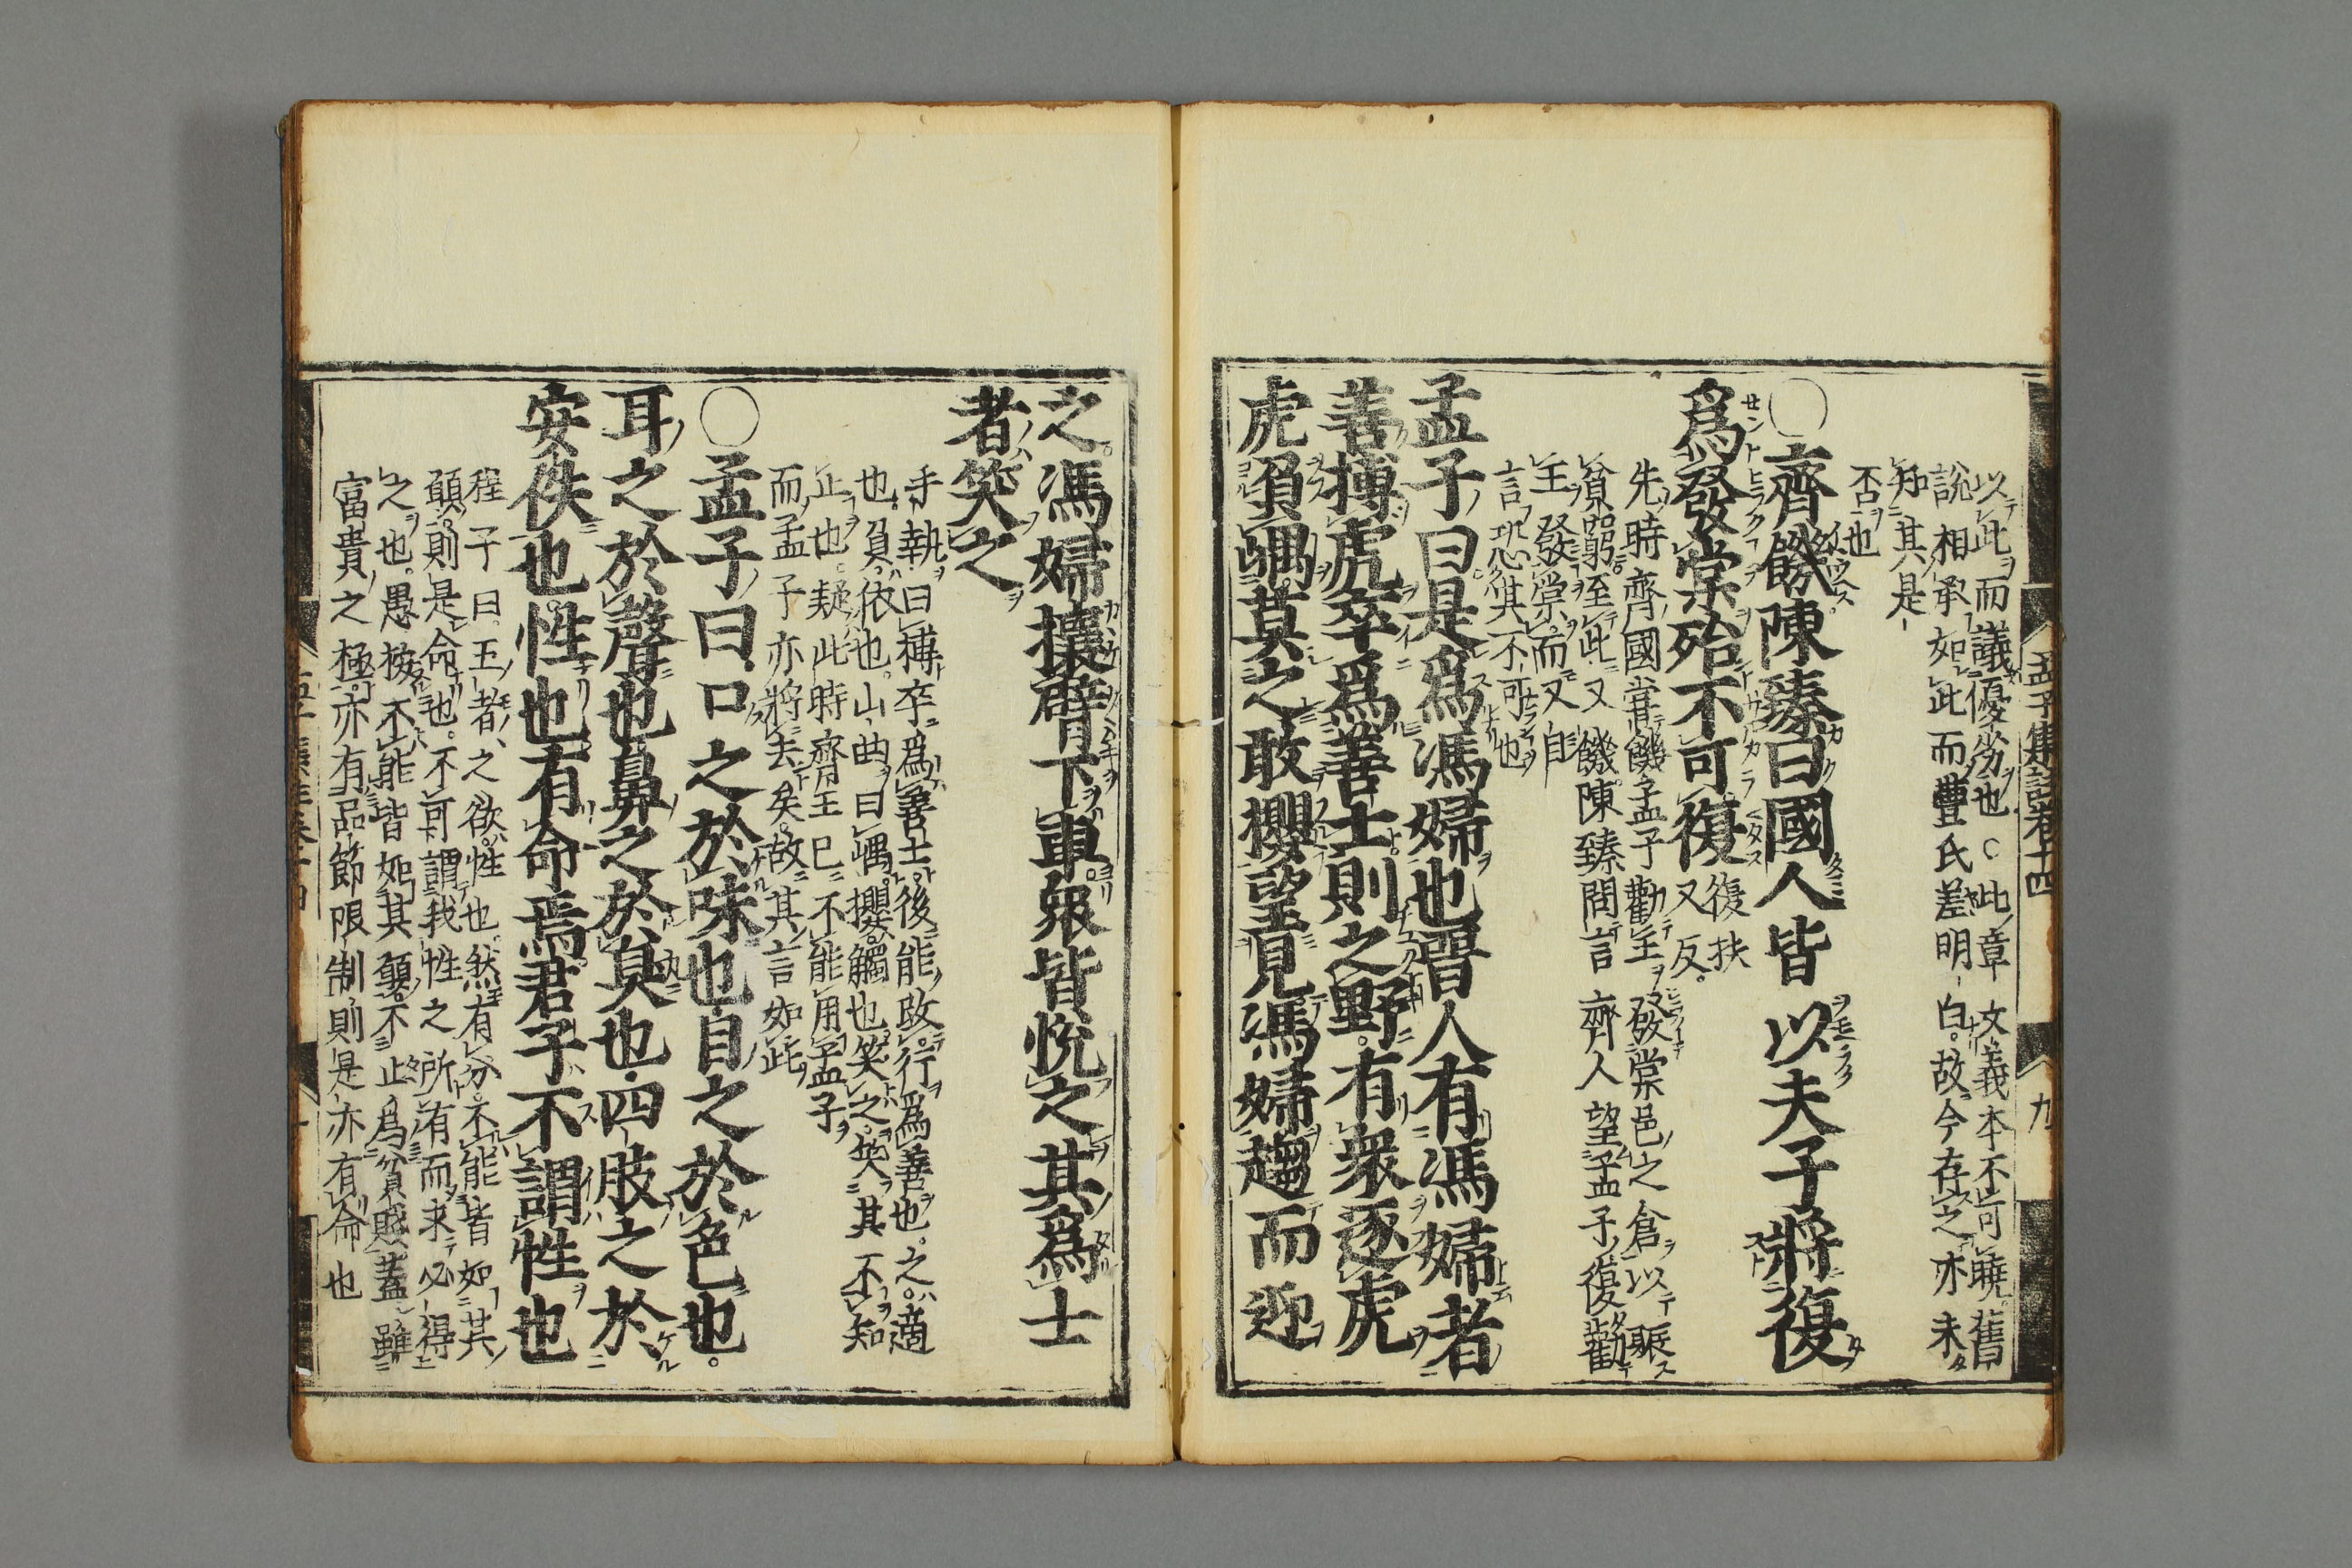 孟子集註卷十四
九
以此而議優劣也○此章文義本不可曉舊
說相承如此而豐氏差明白故今存之亦未
知其是
否也
○齊饑陳臻曰國人皆以夫子將復
爲發棠殆不可復
復扶
又反
先時齊國嘗饑孟子勸王發棠邑之倉以賑
貧窮至此又饑陳臻問言齊人望孟子復勸
王發棠而又自
言恐其不可也
孟子曰是爲馮婦也晉人有馮婦者
善搏虎卒爲善士則之野有衆逐虎
虎負嵎莫之敢攖望見馮婦趨而迎
之馮婦攘臂下車衆皆悅之其爲士
者笑之
手執曰搏卒爲善士後能改行爲善也之適
也負依也山曲曰嵎攖觸也笑之笑其不知
止也疑此時齊王已不能用孟子
而孟子亦將去矣故其言如此
○孟子曰口之於味也目之於色也
耳之於聲也鼻之於臭也四肢之於
安佚也性也有命焉君子不謂性也
程子曰五者之欲性也然有分不能皆如其
願則是命也不可謂我性之所有而求必得
之也愚按不能皆如其願不止爲貧賤蓋雖
富貴之極亦有品節限制則是亦有命也